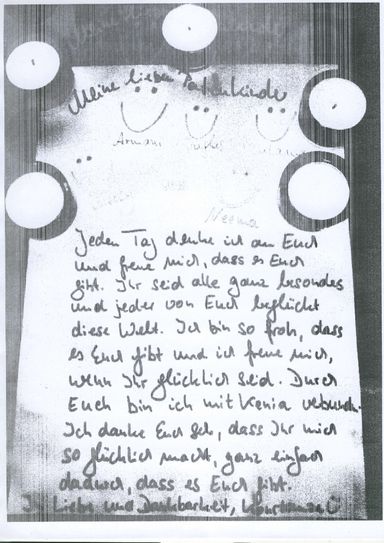 Meine lieben Patenkinder
Neema
Jeden Tag denke ich an Euch
und freue mich, dass es Euch
gibt. Ihr seid alle ganz besondes
und jeder von Euch beglückt
diese Welt. Ich bin so froh, dass
es Euch gibt und ich freue mich,
wenn Ihr glücklich seid. Durch
Euch bin ich mit Kenia verbunden.
Ich danke Euch sehr, dass Ihr mich
so glücklich macht, ganz einfach
dadurch, dass es Euch gibt.
In Liebe und Dankbarkeit, Konstanze